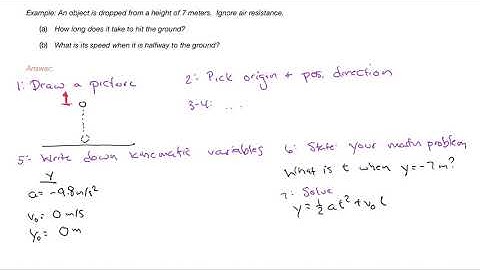 Example: An object is dropped from a height of 7 meters. Ignore air resistance.
(a) How long does it take to hit the ground?
(b) What is its speed when it is halfway to the ground?
Answer:
1: Draw a picture
2: Pick origin + pos. direction
3-4: ...
5: Write down kinematic variables
y
a = -9.8 m/s²
v₀ = 0 m/s
y₀ = 0 m
6: State your math problem
What is t when y = -7m?
7: Solve
y = ½ at² + v₀ t